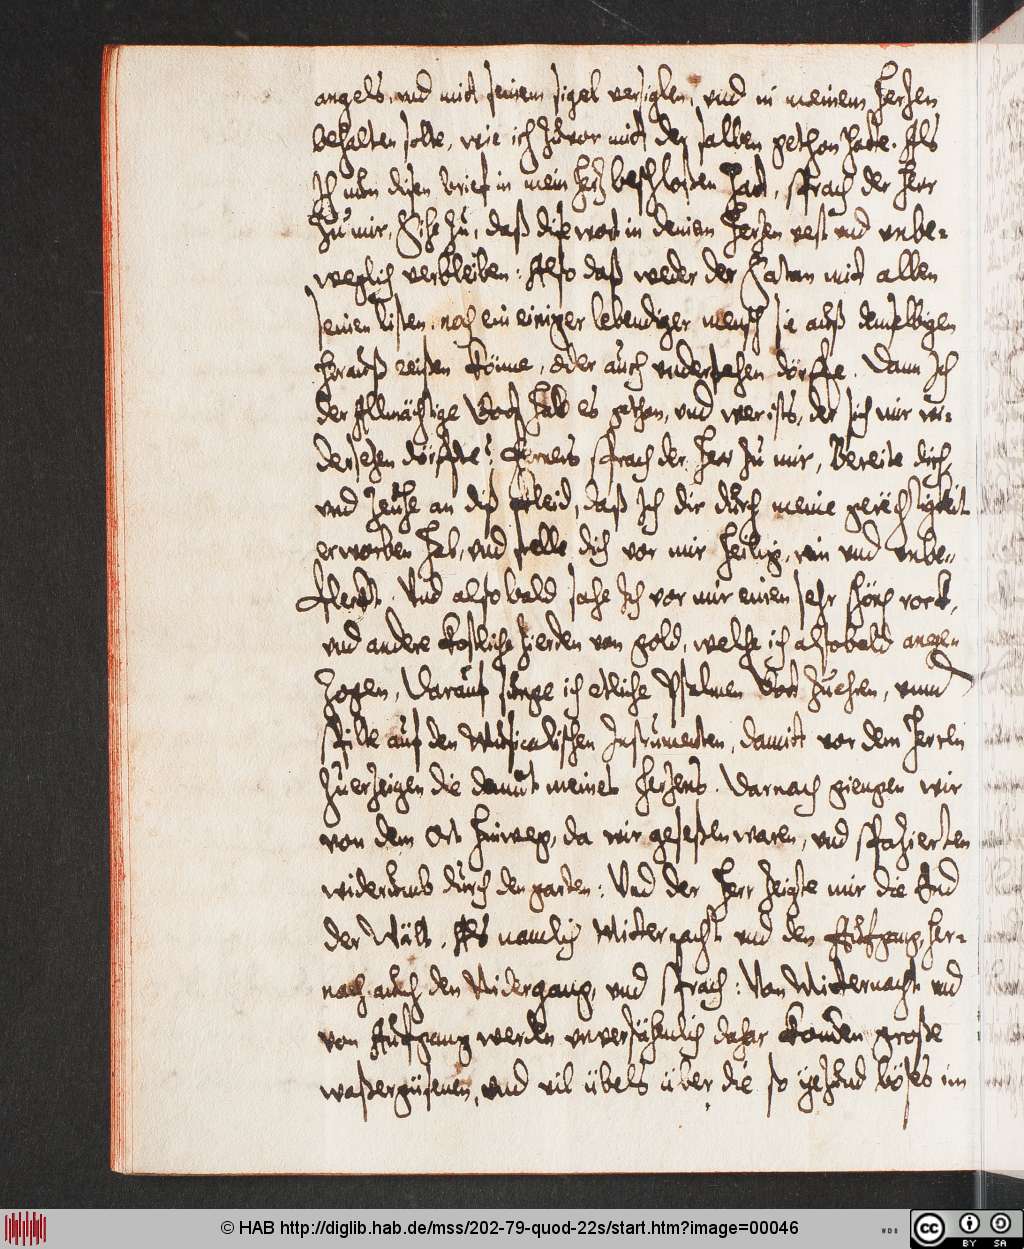 angels, vnd mitt seinem sigel versiglen, vnd in meinem Hertzen
behalten solte, wie ich zuvor mitt der salben gethon hatte. Als
Ich nun disen brief in mein Hertz beschloßen hatt, sprach der Herr
zu mir, Sihe zu, daß dise wort in deinem Hertzen vest vnd vnbe-
weglich verbleiben: Also daß weder der Satan mitt allen
seinen listen, noch ein einiger lebendiger mensch sie auß demselbigen
herauß reißen könne, oder auch understehen dörffte. Dann Ich
der Allmächtige Gott hab es gethon, vnd wer ists, der sich mir wi-
dersetzen dörffte? Ferners sprach der Herr zu mir, Bereite dich,
vnd zeuhe an diß kleid, daß Ich dir durch meine gerechtigkeit
erworben hab, vnd stelle dich vor mir heilig, rein vnd vnbe-
fleckt. Vnd also bald sahe Ich vor mir einen sehr schönen rock,
vnd andere kostliche zierden von gold, welche ich alsobald angen
zogen, Darauf sunge ich etliche Psalmen Gott zu ehren, vnnd
spilte auf den Musicalischen Instrumenten, damitt vor dem Herren
zu erzeigen die demut meines Hertzens. Darnach giengen wir
von dem Ort hinweg, da wir geseßen waren, vnd spazierten
widerumb durch den garten: Vnd der Herr zeigte mir die End
der Wält, Als namlich Mitternacht vnd den Aufgang, her-
nach auch den Nidergang, vnd sprach: Von Mitternacht vnd
von Aufgang werden vnversähenlich dahar kommen große
waßergüsenen, vnd vil übels über die so yetzund böses im
© HAB http://diglib.hab.de/mss/202-79-quod-22s/start.htm?image=00046
WDB
cc BY SA